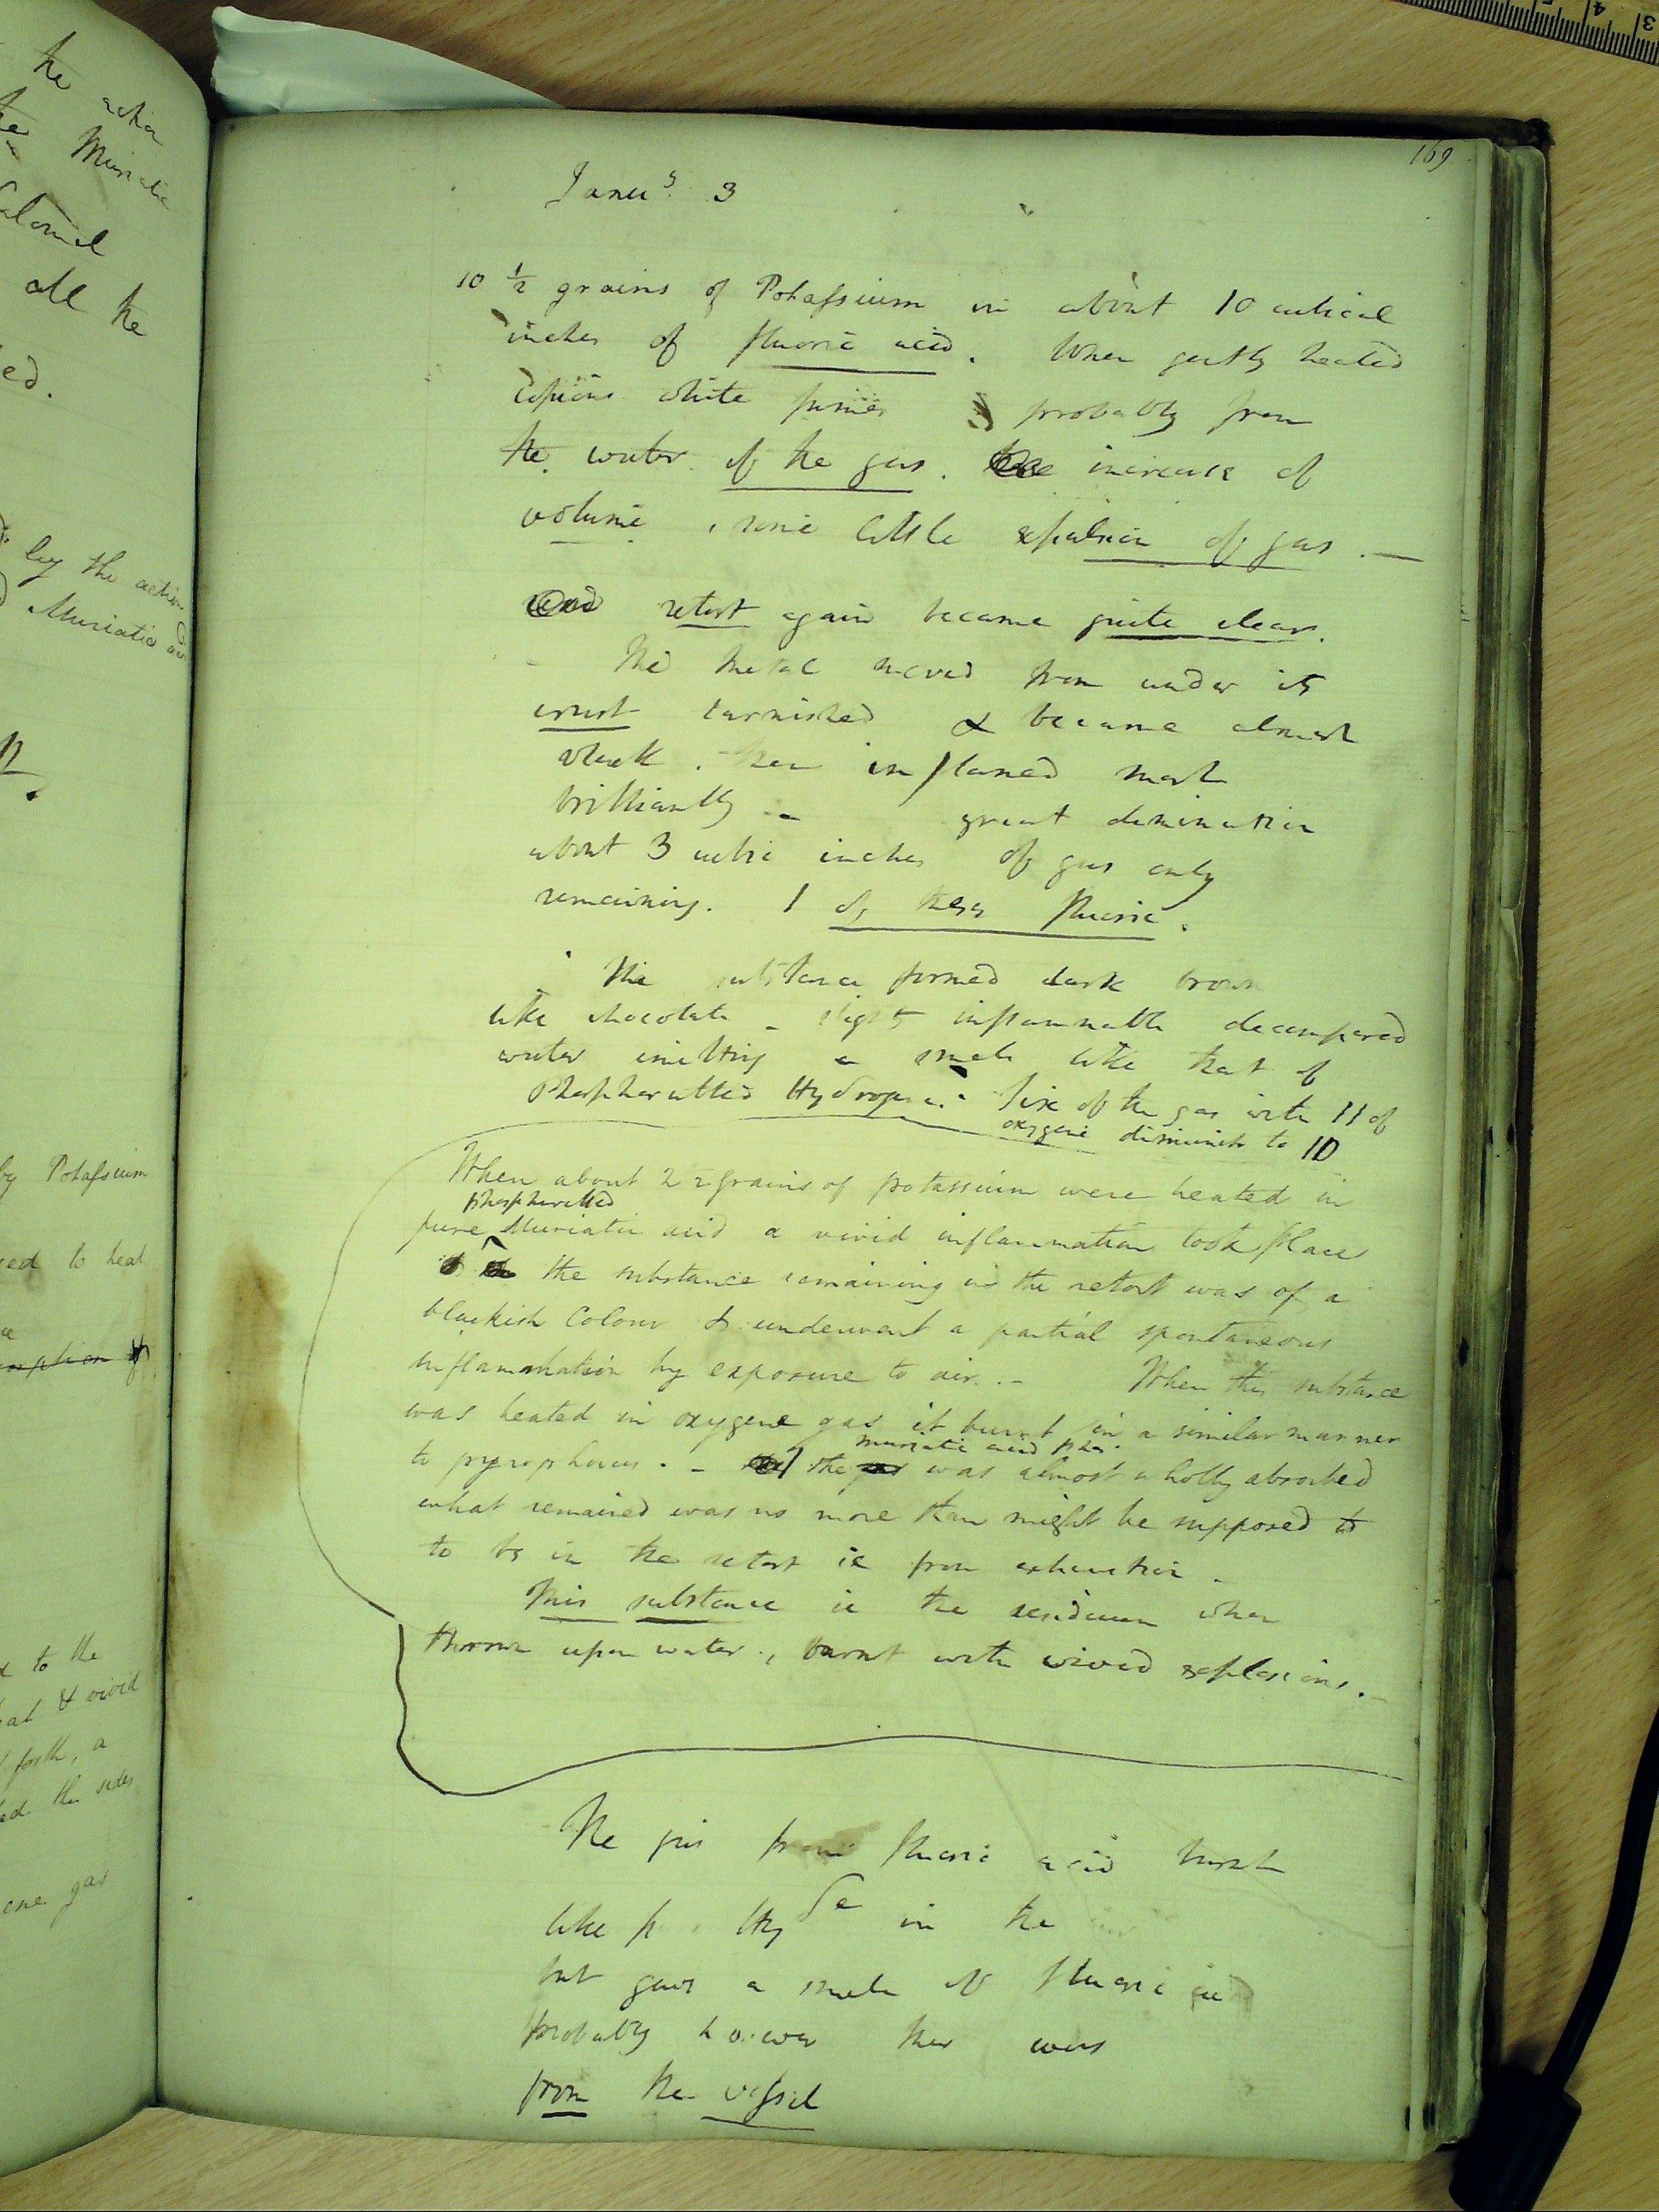 the action
the Muriatic
Calomel
all the
ed.
by the action
Muriatic
by Potassium
sed to heat
to the
at & vivid
forth, a
ed the sides
ene gas
169
Janu^y. 3
10 ½ grains of Potassium in about 10 cubical
inches of fluoric acid. When gently heated
copious white fumes probably from
the water of the gas. increase of
volume, some little expulsion of gas. —
retort again became quite clear.
The metal moved from under its
crust tarnished & became almost
black. then inflamed most
brilliantly — great diminution
about 3 cubic inches of gas only
remaining. 1 of these fluoric.
The substance formed dark brown
like chocolate – slightly inflammable decomposed
water emitting a smell like that of
Phosphoretted Hydrogene. – five of the gas with 11 of
oxygene diminish to 10
When about 2 ½ grains of potassium were heated in
phosphoretted
pure ^ Muriatic acid a vivid inflammation took place
the substance remaining in the retort was of a
blackish Colour & underwent a partial spontaneous
inflammation by exposure to air. – When this substance
was heated in oxygene gas it burnt in a similar manner
muriatic acid pho.
to pyrophorus. – the gas was almost wholly absorbed
what remained was no more than might be supposed to
to be in the retort ie from exhaustion –
This substance ie the residuum when
thrown upon water, burnt with vivid explosions. –
The gas from fluoric acid burnt
like p. Hy^de in the
but gave a smell of fluoric acid
probably however this was
from the vessel